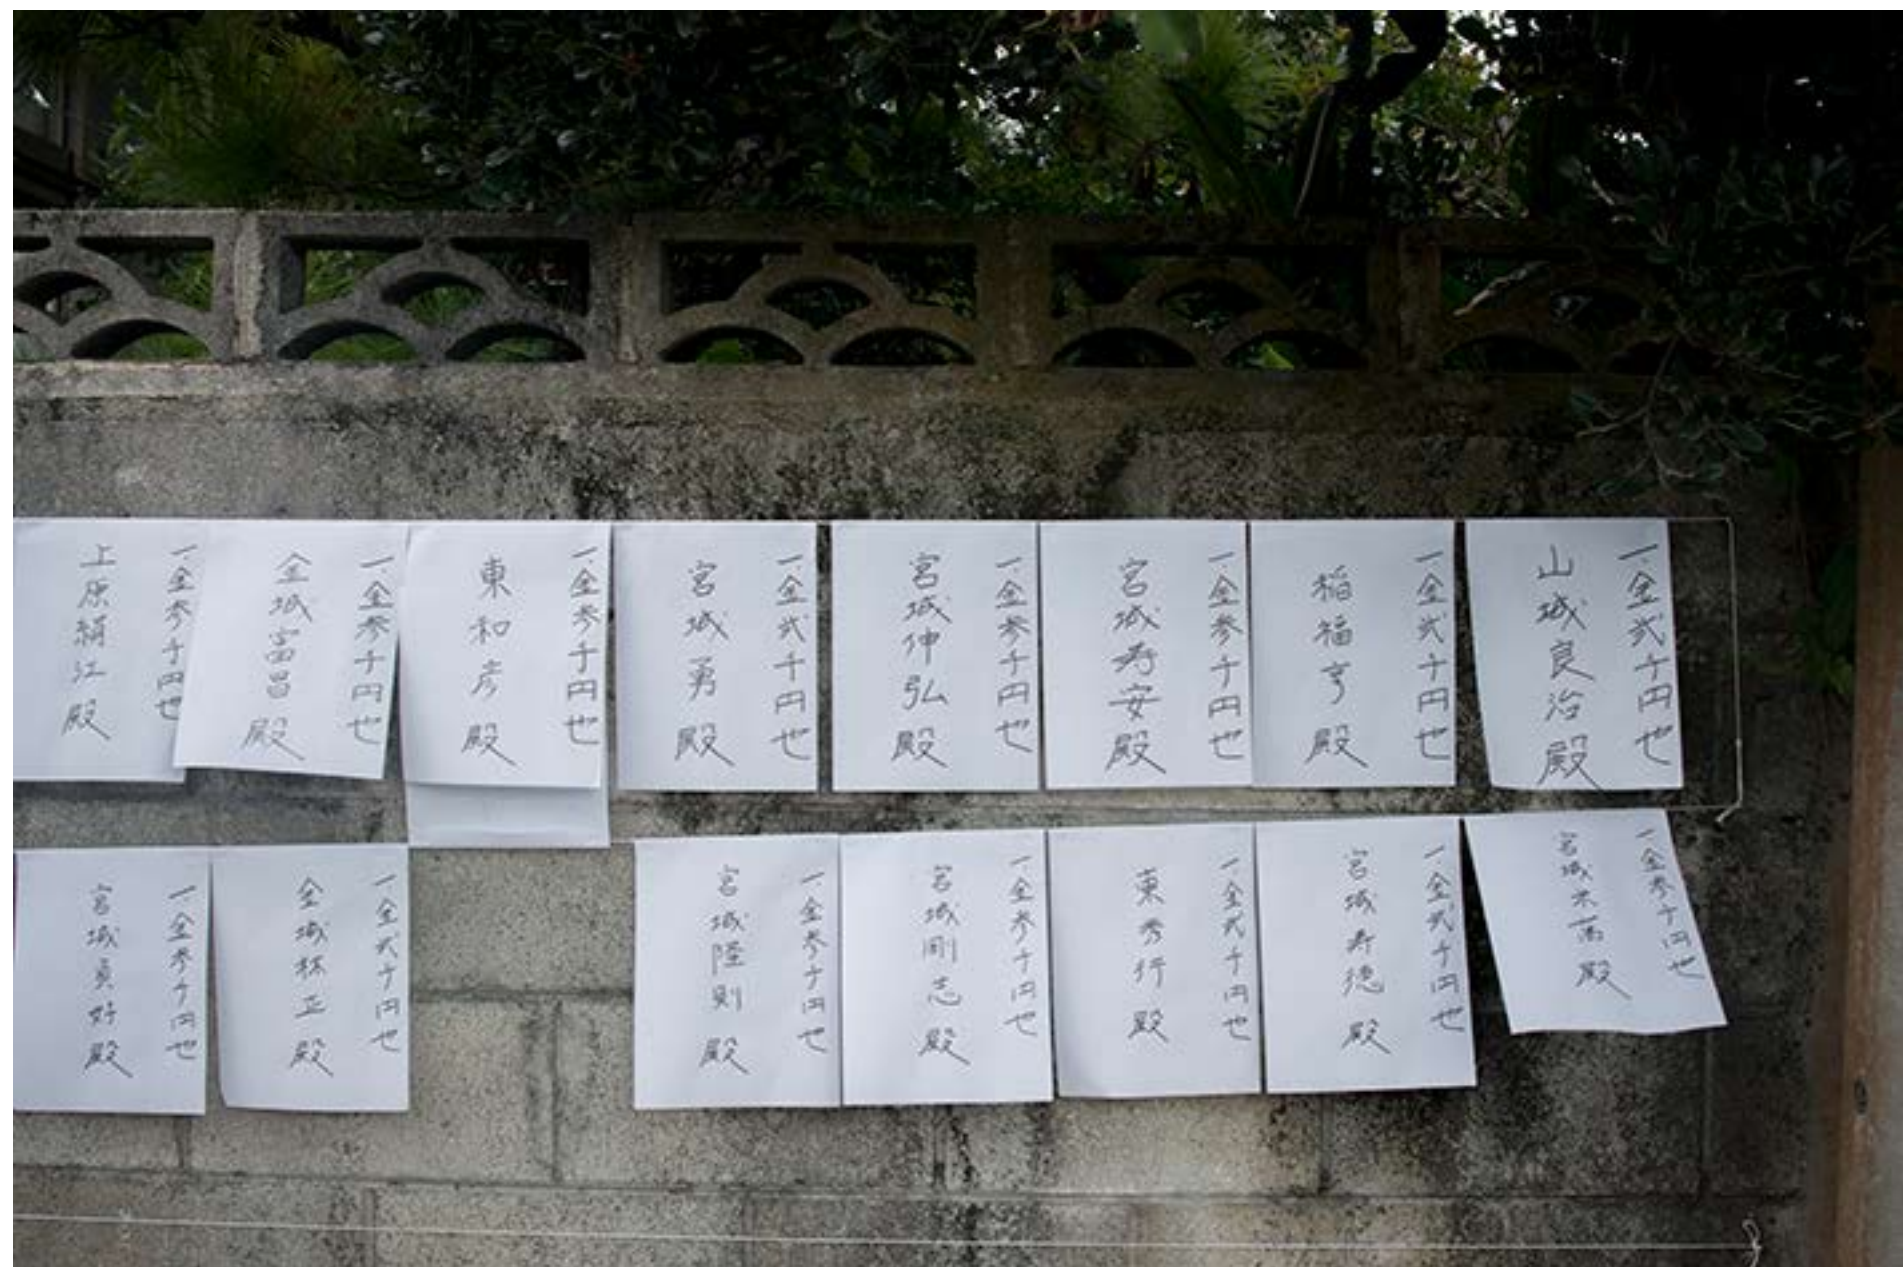 一、金弐千円也
山城良治殿
一、金弐千円也
稲福亨殿
一、金参千円也
宮城寿安殿
一、金参千円也
宮城伸弘殿
一、金弐千円也
宮城勇殿
一、金参千円也
東和彦殿
一、金参千円也
金城富昌殿
一、金参千円也
上原絹江殿
一金参千円也
宮城 殿
一金弐千円也
宮城寿徳殿
一金弐千円也
東秀行殿
一金参千円也
宮城剛志殿
一金参千円也
宮城隆則殿
一金弐千円也
金城林正殿
一金参千円也
宮城 好殿